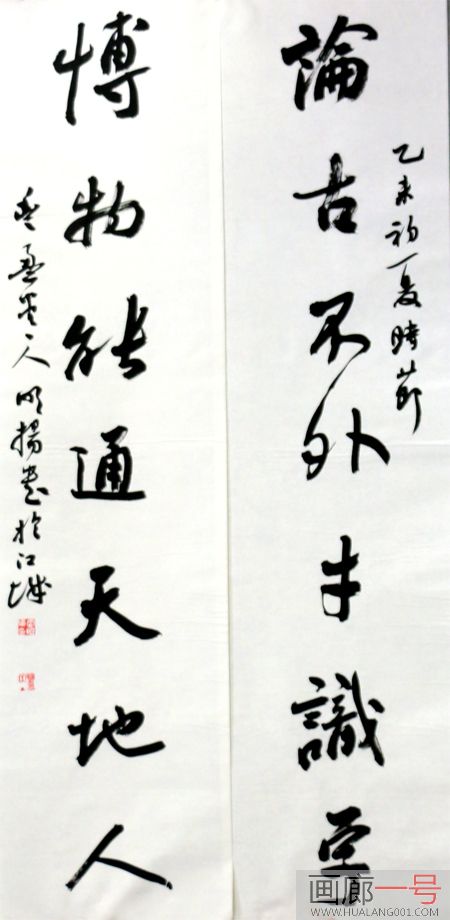 乙未初夏時節
論古不外才識
博物能通天地人
人明揚書於江城
画廊一号
WWW.HUALANG001.COM